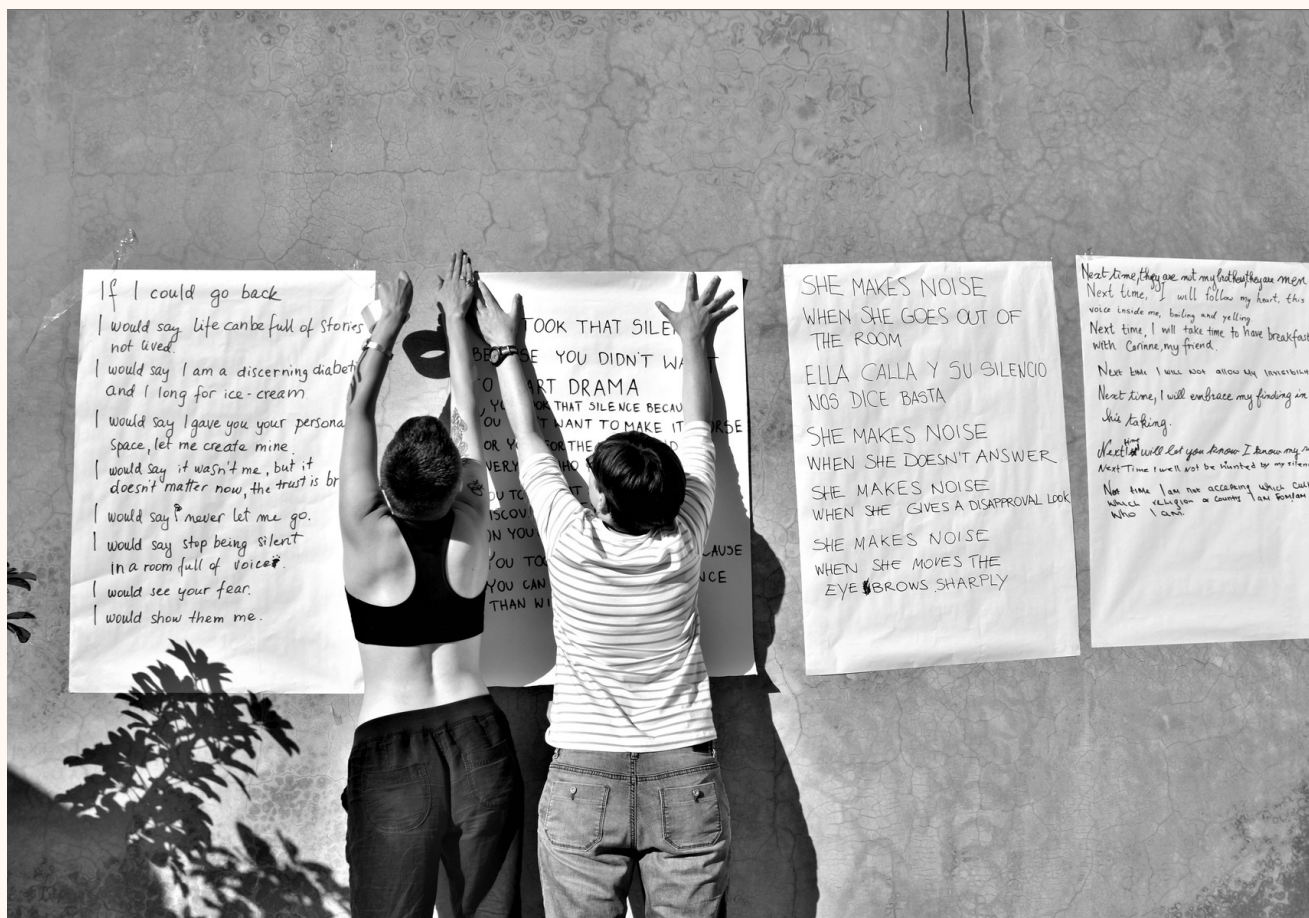 If I could go back
I would say Life can be full of stories
not lived.
I would say I am a discerning
and I long for ice-cream
I would say I gave you your
space, let me create mine
I would say it wasn't me, but it
doesn't matter now, the trust is
I would say never let me go.
I would say stop being silent
in a room full of voices.
I would see your fear.
I would show them me.
TOOK THAT
YOU DIDN'T
DRAMA
THAT SILENCE
WANT TO MAKE IT
FOR THE
YOU
YOU CAN
THAN
SHE MAKES NOISE
WHEN SHE GOES OUT OF
THE ROOM
ELLA CALLA Y SU SILENCIO
NOS DICE BASTA
SHE MAKES NOISE
WHEN SHE DOESN'T ANSWER
SHE MAKES NOISE
WHEN SHE GIVES A DISAPPROVAL LOOK
SHE MAKES NOISE
WHEN SHE MOVES THE
EYEBROWS SHARPLY
Next time, they are not my brothers, they are men
Next time, I will follow my heart, this
voice inside me, boiling and yelling
Next time, I will take time to have breakfast
with Corinne, my friend.
Next time I will NOT allow my
Next time, I will embrace my finding in
his taking.
Next time I will let you know I know my
Next Time I will Not be Hunted by my
time I am not accepting which
which religion or country I am from
who I am.